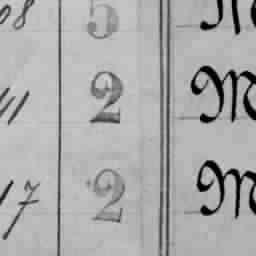 08 5 M
41 2 M
17 2 M